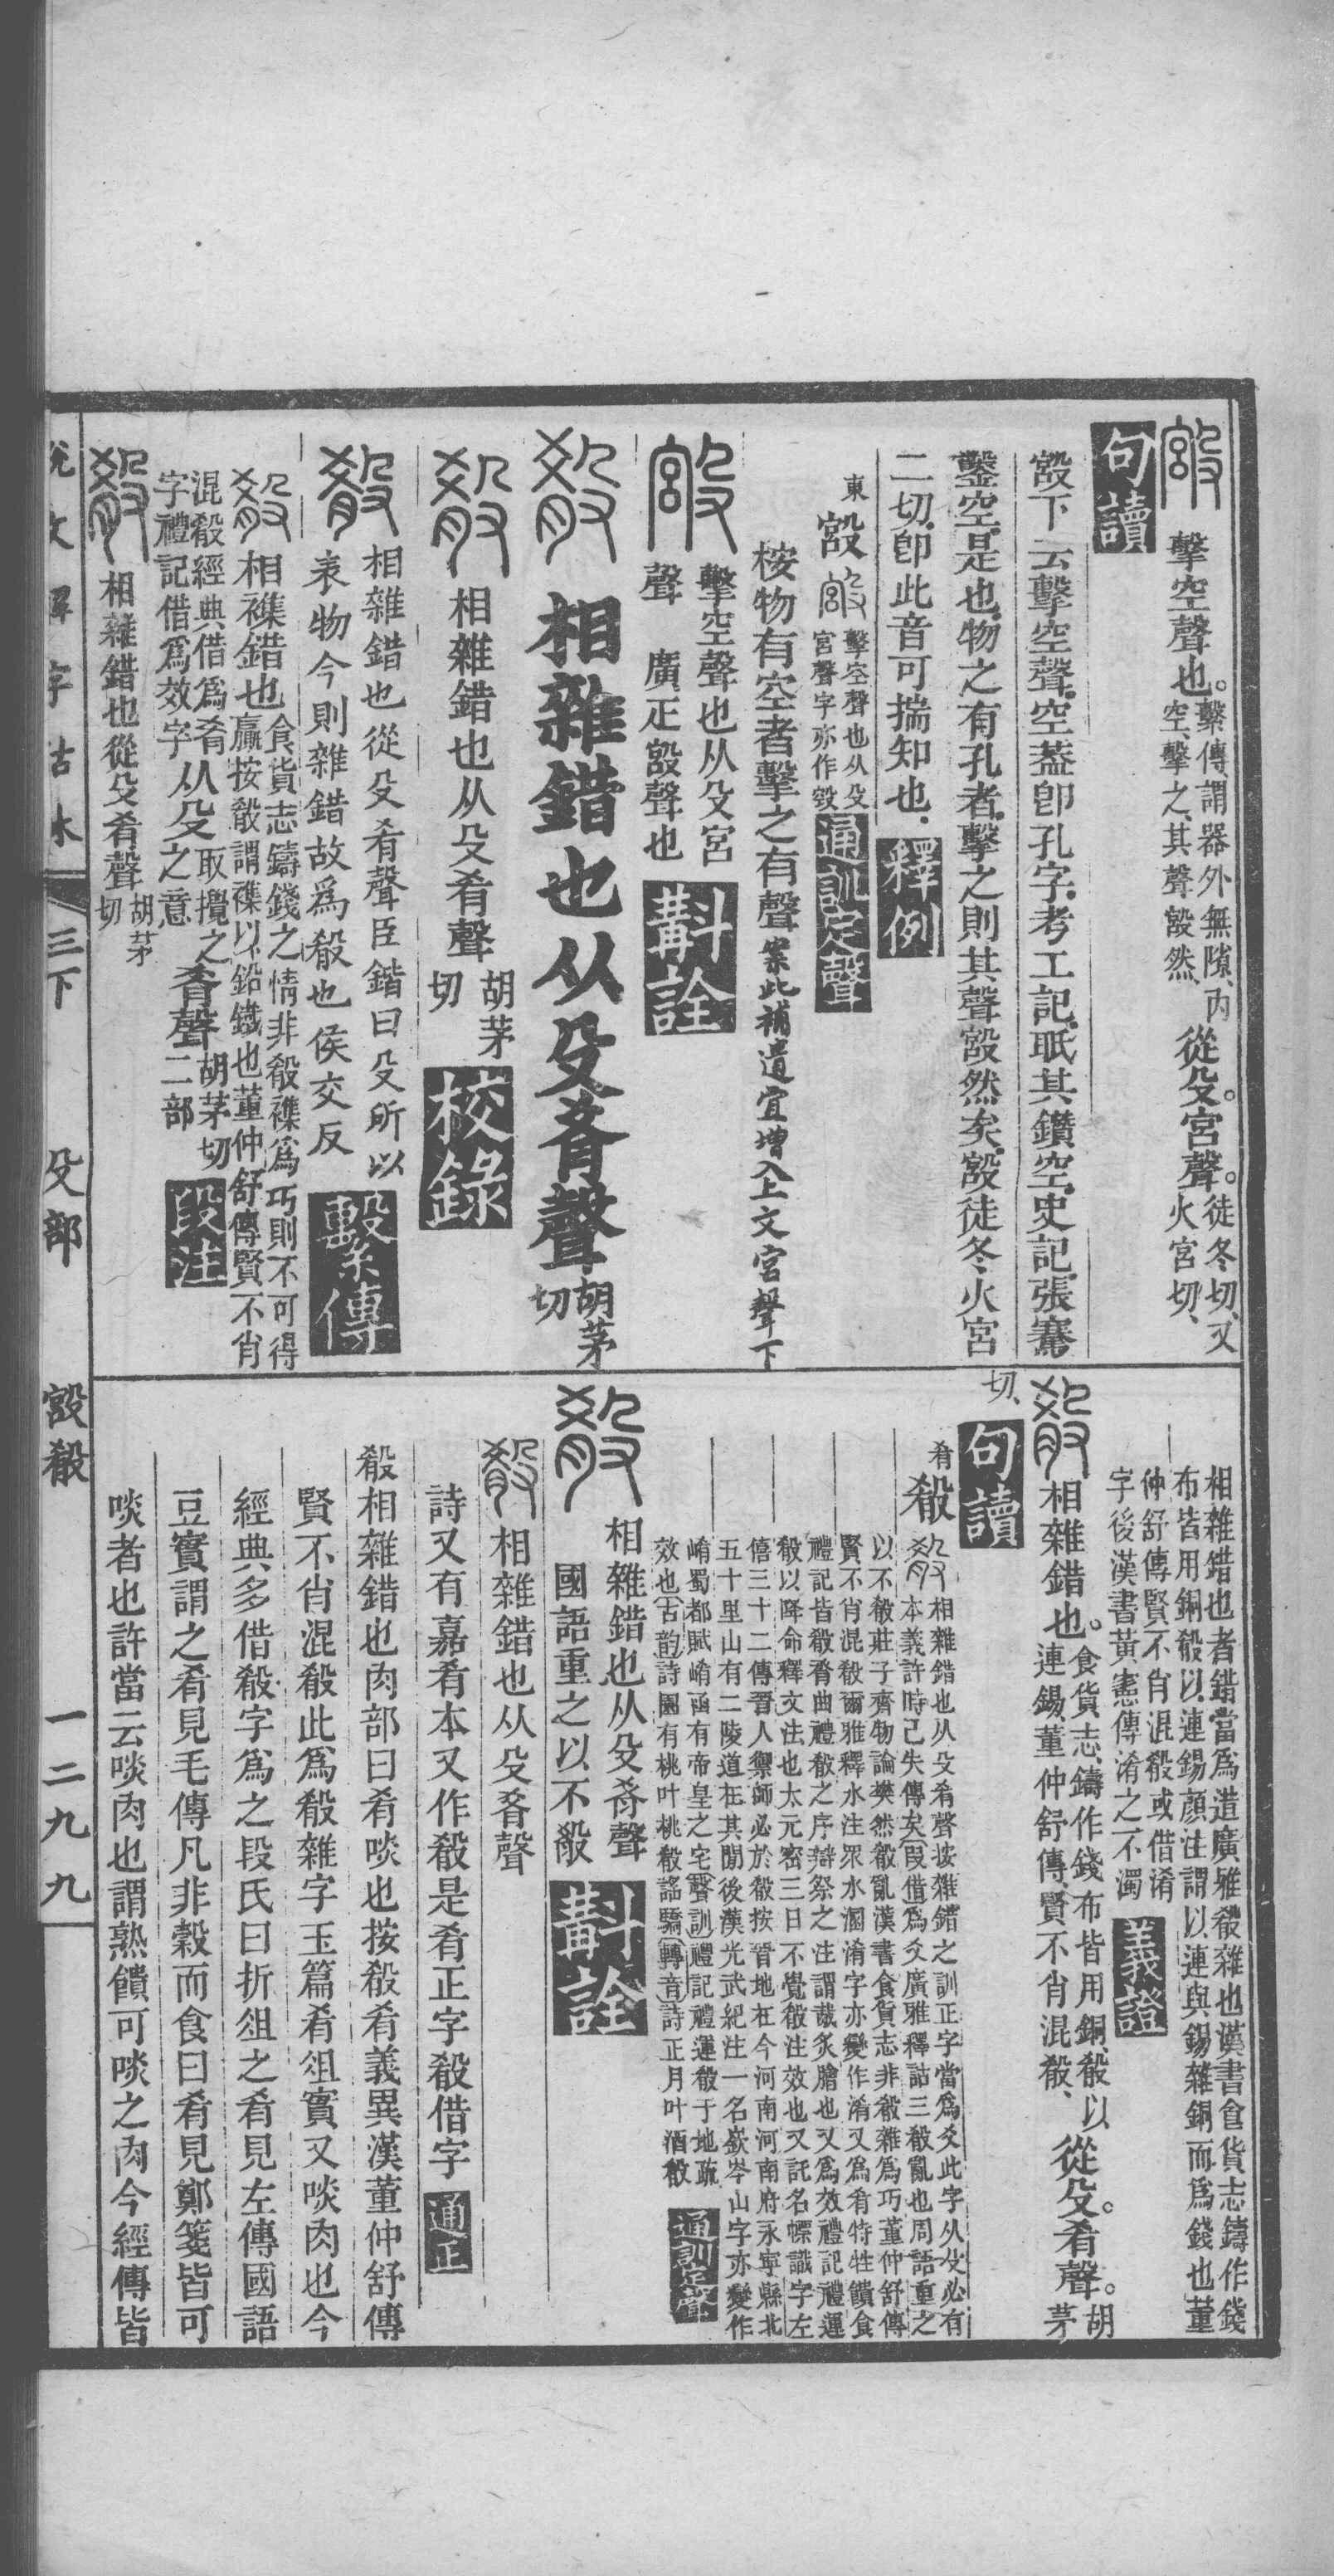 擊空聲也。繫傳、謂器外無隙、內
空、擊之、其聲㲁然、從殳。宮聲。徒冬切、又
火宮切、
句讀
㲁下云擊空聲、空蓋卽孔字、考工記、眂其鑽空、史記、張騫
鑿空、是也、物之有孔者、擊之則其聲㲁然矣、㲁徒冬火宮
二切、卽此音可揣知也、釋例
東㲁擊空聲也从殳
宮聲字亦作㲁通訓定聲
桉物有空者擊之有聲案此補遺宜增入上文宮聲下
擊空聲也从殳宮
聲 廣疋㲁聲也斠詮
相雜錯也从殳肴聲胡茅
切
相雜錯也从殳肴聲胡茅
切校錄
相雜錯也從殳肴聲臣鍇曰殳所以
表物今則雜錯故爲殽也侯交反繫傳
相襍錯也食貨志鑄錢之情非殽襍爲巧則不可得
贏按殽謂襍以鉛鐵也董仲舒傳賢不肖
混殽經典借爲肴
字禮記借爲效字从殳取攪之
之意肴聲胡茅切
二部段注
相雜錯也從殳肴聲胡茅
切
相雜錯也者錯當爲逪廣雅殽雜也漢書食貨志鑄作錢
布皆用銅殽以連錫顏注謂以連與錫雜銅而爲錢也董
仲舒傳賢不肖混殽或借淆
字後漢書黃憲傳淆之不濁義證
相雜錯也。食貨志、鑄作錢布皆用銅、殽以
連錫、董仲舒傳、賢不肖混殽、從殳。肴聲。胡
茅
切、
句讀
肴殽相雜錯也从殳肴聲按雜錯之訓正字當爲爻此字从殳必有
本義許時已失傳矣叚借爲爻廣雅釋詁三殽亂也周語重之
以不殽莊子齊物論樊然殽亂漢書食貨志非殽雜爲巧董仲舒傳
賢不肖混殽爾雅釋水注眾水溷淆字亦變作淆又爲肴特牲饋食
禮記皆殽脀曲禮殽之序辯祭之注謂胾炙膾也又爲效禮記禮運
殽以降命釋文法也太元密三日不覺殽注效也又託名幖識字左
僖三十二傳晉人禦師必於殽按晉地在今河南河南府永寧縣北
五十里山有二陵道在其閒後漢光武紀注一名嶔岑山字亦變作
崤蜀都賦崤函有帝皇之宅聲訓禮記禮運殽于地疏
效也古韵詩園有桃叶桃殽謠驕轉音詩正月叶酒殽通訓定聲
相雜錯也从殳肴聲
國語重之以不殽斠詮
相雜錯也从殳肴聲
詩又有嘉肴本又作殽是肴正字殽借字通正
殽相雜錯也肉部曰肴啖也按殽肴義異漢董仲舒傳
賢不肖混殽此爲殽雜字玉篇肴俎實又啖肉也今
經典多借殽字爲之段氏曰折俎之肴見左傳國語
豆實謂之肴見毛傳凡非穀而食曰肴見鄭箋皆可
啖者也許當云啖肉也謂熟饋可啖之肉今經傳皆
說文解字詁林 三下 殳部 㲁殽 一二九九